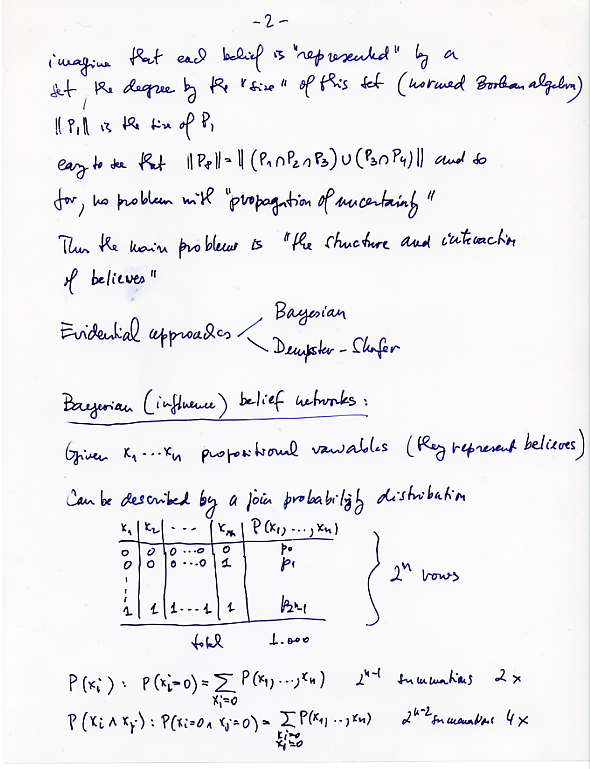 -2-
imagine that each belief is "represented" by a
set, the degree by the "size" of this set (normed Boolean algebra)
||P₁|| is the size of P₁
easy to see that ||P₈|| = ||(P₁∩P₂∩P₃)∪(P₃∩P₄)|| and so
far, no problem with "propagation of uncertainty"
Thus the main problems is "the structure and interaction
of believes"
Evidential approaches < Bayesian
Dempster-Shafer
Bayesian (influence) belief networks:
Given x₁...xₙ propositional variables (they represent believes)
Can be described by a join probability distribution
x₁ | x₂ | ... | xₙ | P(x₁,...,xₙ)
0 | 0 | 0...0 | 0 | p₀
0 | 0 | 0...0 | 1 | p₁
1 | 1 | 1...1 | 1 | p₂ⁿ₋₁
} 2ⁿ rows
total 1.000
P(xᵢ): P(xᵢ=0) = ∑ P(x₁,...,xₙ) 2ⁿ⁻¹ summations 2x
xᵢ=0
P(xᵢ∧xⱼ): P(xᵢ=0∧xⱼ=0) = ∑ P(x₁,...,xₙ) 2ⁿ⁻² summations 4x
xᵢ=0
xⱼ=0